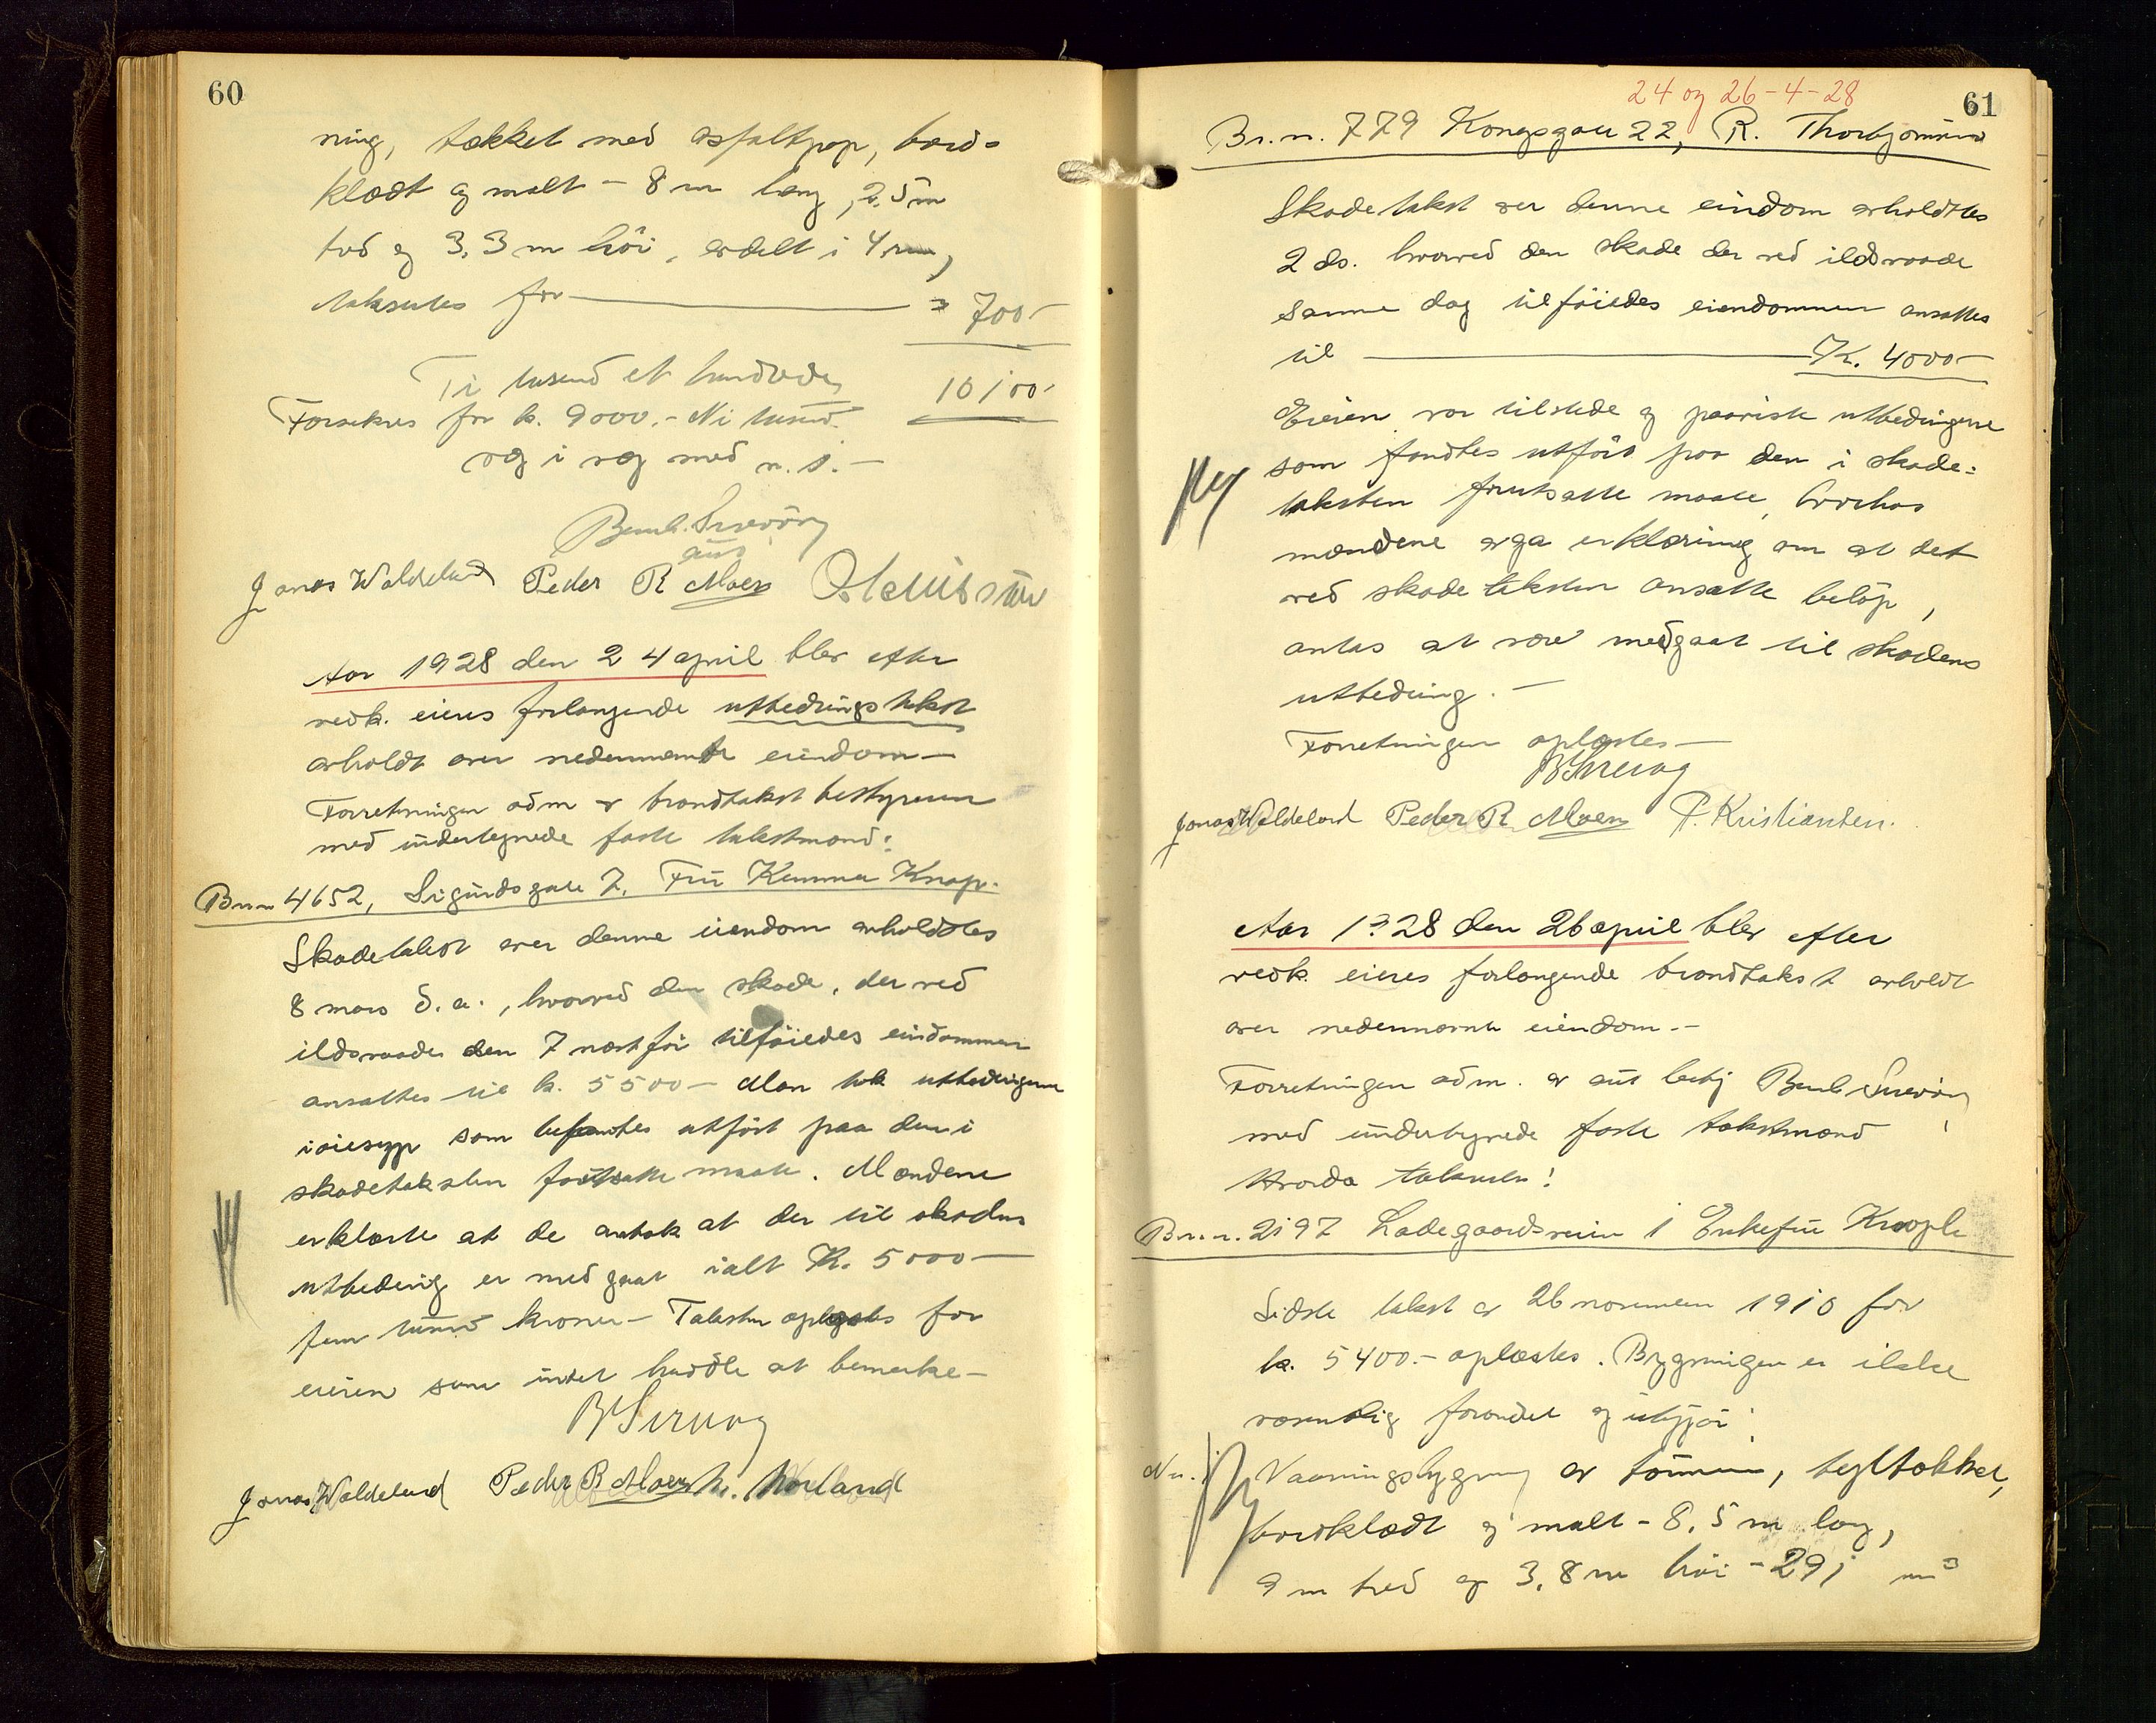 60
ning, tækket med asfaltpap, bord-
klædt og malt - 8 m lang, 2.5 m
bred og 3.3 m høi, avdelt i 4 rum,
takseres for = 700-
Ti tusend et hundrede 10100-
Forsikres for k. 9000.- Ni tusend.
og med n. s. -
Bernh.
aut
Jonas Waldeland Peder R Moen
Aar 1928 den 24 april blev efter
vedk. eieres forlangende utbedringstakst
avholdt over nedennævnte eiendom -
Forretningen adm av brandtakstbestyreren
med undertegnede faste takstmænd:
Br. nr 4652, Sigurdsgate 7. Fru Kemner Knap.
Skadetakst over denne eiendom avholdtes
8 mars d. a., hvorved den skade, der ved
ildsvaade den 7 næst før tilføiedes eiendommen
ansattes til k. 5500 - Man tok utbedringene
i øiesyn som befantes utført paa den i
skadetaksten forutsatte maate. Mændene
erklærte at de antok at der til skadens
utbedring er medgaat ialt Kr. 5000 -
fem tusind kroner - Taksten oplæstes for
eieren som intet hadde at bemerke -
Jonas Waldeland Peder R Moen
24 og 26-4-28
61
Br. n. 779 Kongsgate 22, R. Thorbjørnsen
Skadetakst over denne eiendom avholdtes
2 ds. hvorved den skade der ved ildsvaade
samme dag tilføiedes eiendommen ansattes
til Kr. 4000-
Eieren var tilstede og paaviste utbedringene
som fandtes utført paa den i skade-
taksten forutsatte maate, hvorhos
mændene avga erklæring om at det
ved skadetaksten ansatte beløp,
antas at være medgaat til skadens
utbedring. -
Forretningen oplæstes -
Jonas Waldeland Peder R Moen P. Kristiansen.
Aar 1928 den 26 april blev efter
vedk. eieres forlangende brandtakst avholdt
over nedennævnte eiendom. -
Forretningen adm. av aut Bernh
med undertegnede faste takstmænd
Hvorda takseres!
Br. n. 2197 Ladegaardsveien 1 Enkefru Knople
Sidste takst av 26 november 1910 for
k. 5400.- oplæstes. Bygningen er ikke
væsentlig forandret og utgjør:
Nr. 1 Vaaningsbygning av tømmer, tegltækket,
bordklædt og malt - 8.5 m lang,
9 m bred og 3.8 m høi - 291 m3